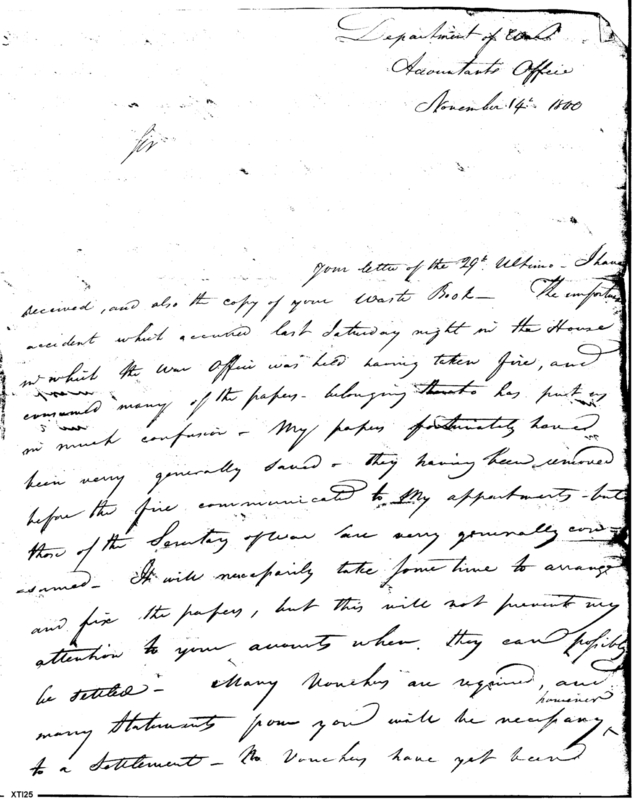 Department of War
Accountants Office
November 14th 1800
Sir
Your letter of the 29th Ultimo - I have
received, and also the copy of your Waste Book - The
accident which occured last Saturday night in the House
in which the War Office was held having taken fire, and
consumed many of the papers - belonging thereto has put us
in much confusion - My papers fortunately have
been verry generally saved - they having been removed
before the fire communicated to My appartments - but
those of the Secretary of War are very generally con-
sumed - It will necessarily take some time to arrange
and fix the papers, but this will not prevent my
attention to your accounts when they can possibly
be settled - Many Vouchers are required, and
however
many Statements from you will be necessary
to a Settlement - No Vouchers have yet been
XTI25